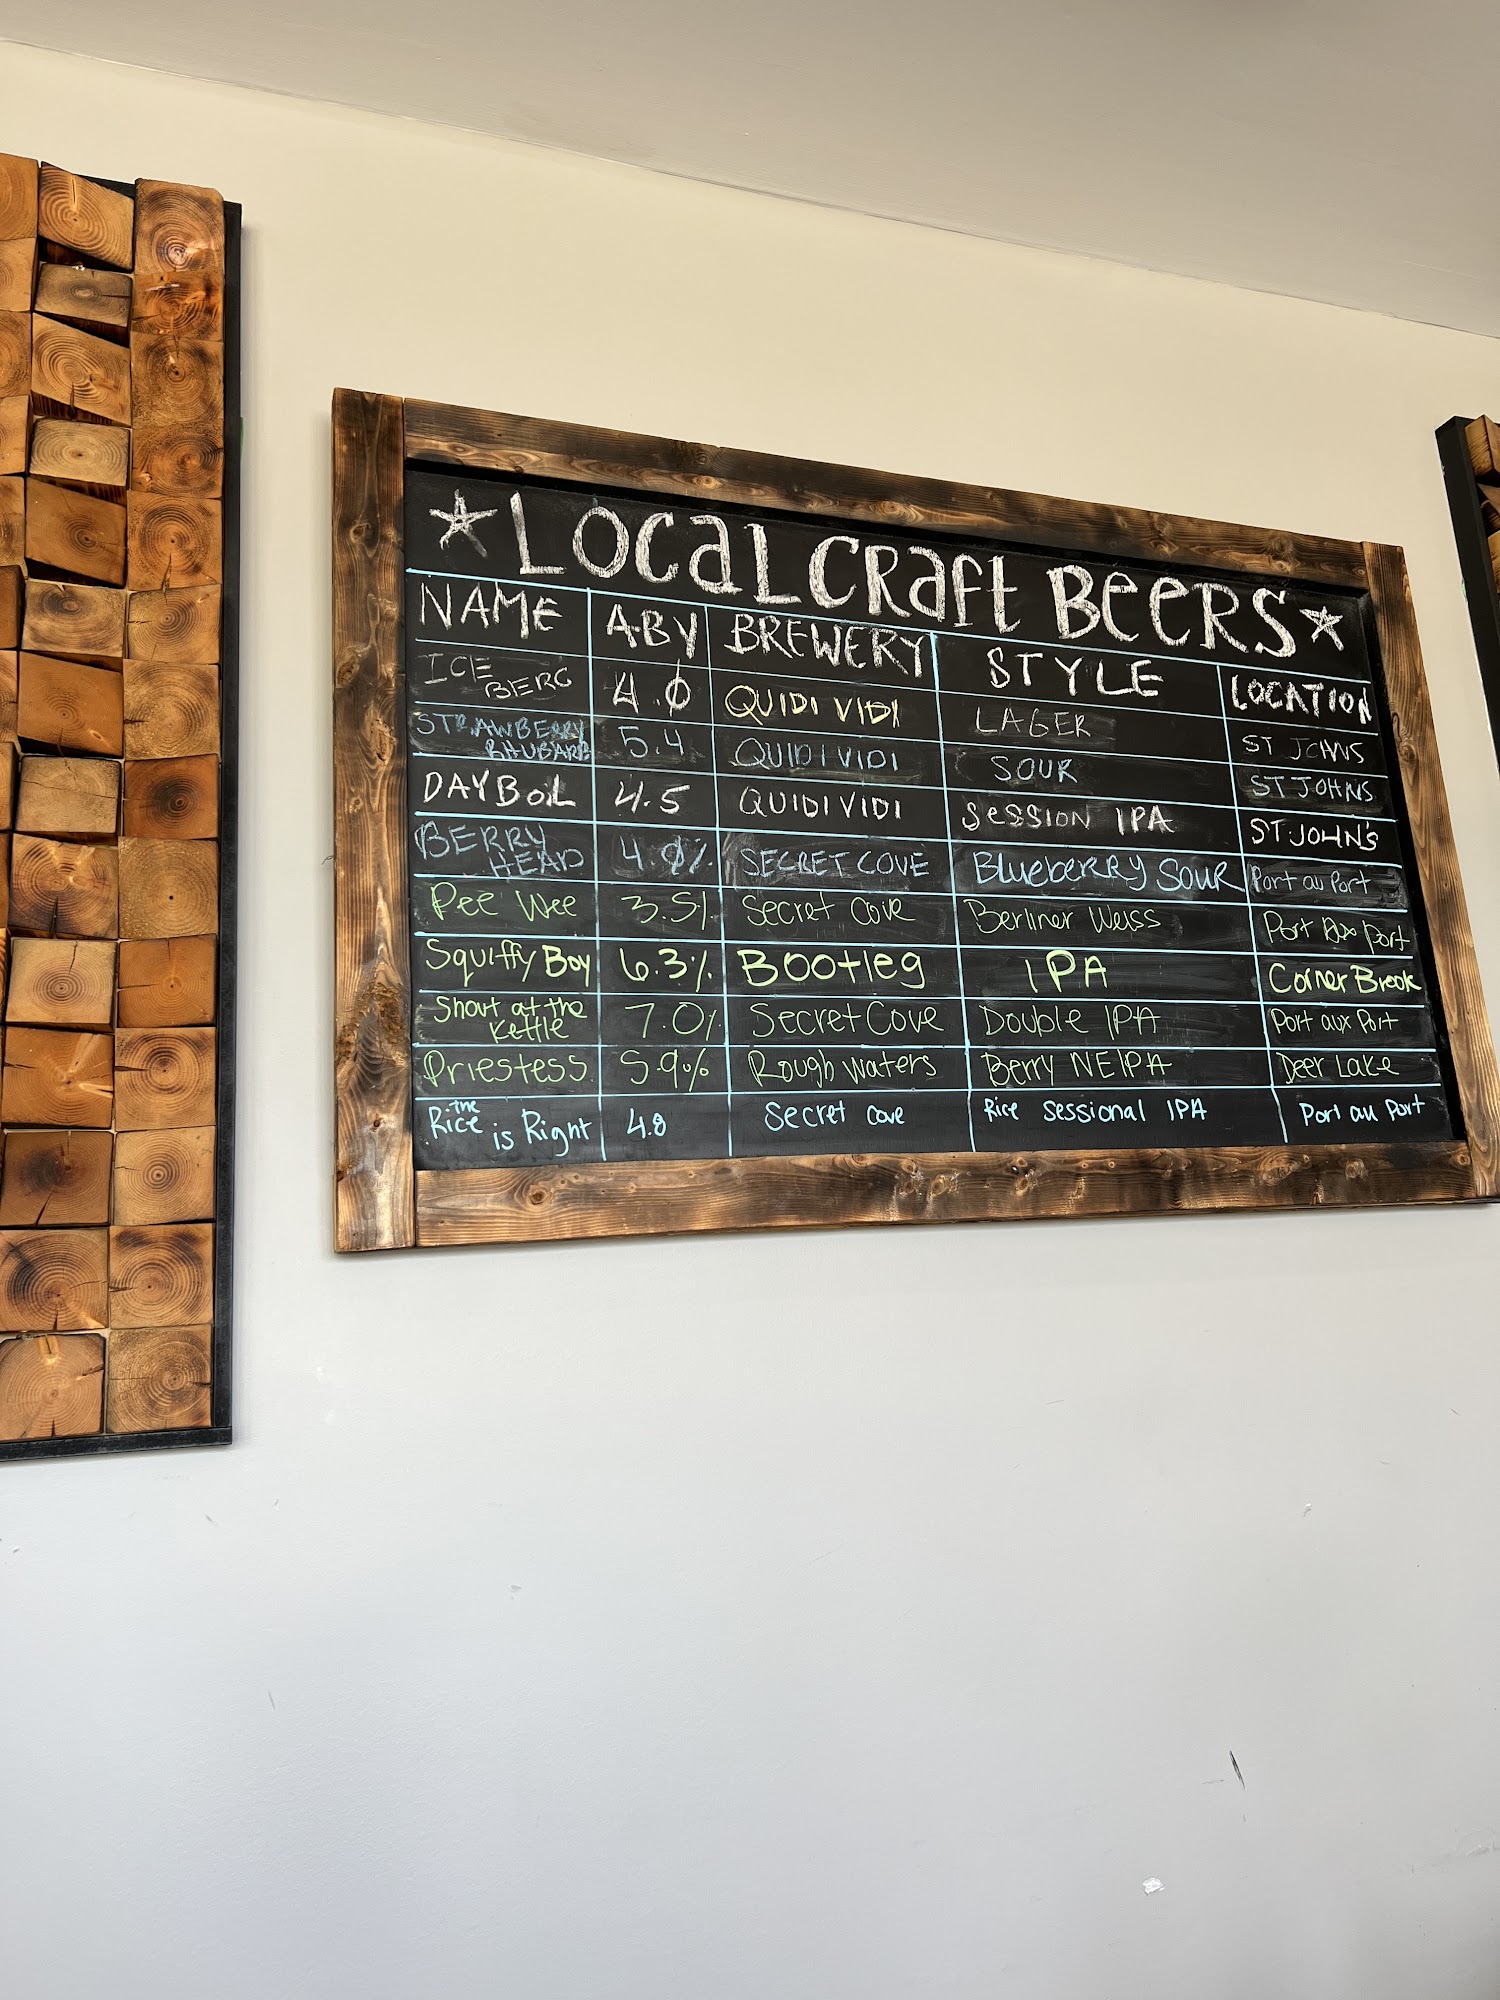 LOCAL CRAFT BEERS
NAME ABV BREWERY STYLE LOCATION
ICE BERG 4.0 QUIDI VIDI LAGER ST JOHNS
STRAWBERRY RHUBARB 5.4 QUIDI VIDI SOUR ST JOHNS
DAY BOIL 4.5 QUIDI VIDI SESSION IPA ST. JOHN'S
BERRY HEAD 4.0% SECRET COVE Blueberry Sour Port au Port
Pee Wee 3.5% Secret Cove Berliner Weiss Port Port
Squiffy Boy 6.3% Bootleg IPA Corner Brook
Shout at the Kettle 7.0% Secret Cove Double IPA Port aux Port
Priestess 5.9% Rough Waters Berry NEIPA Deer Lake
the Rice is Right 4.8 Secret Cove Rice Sessional IPA Port au Port